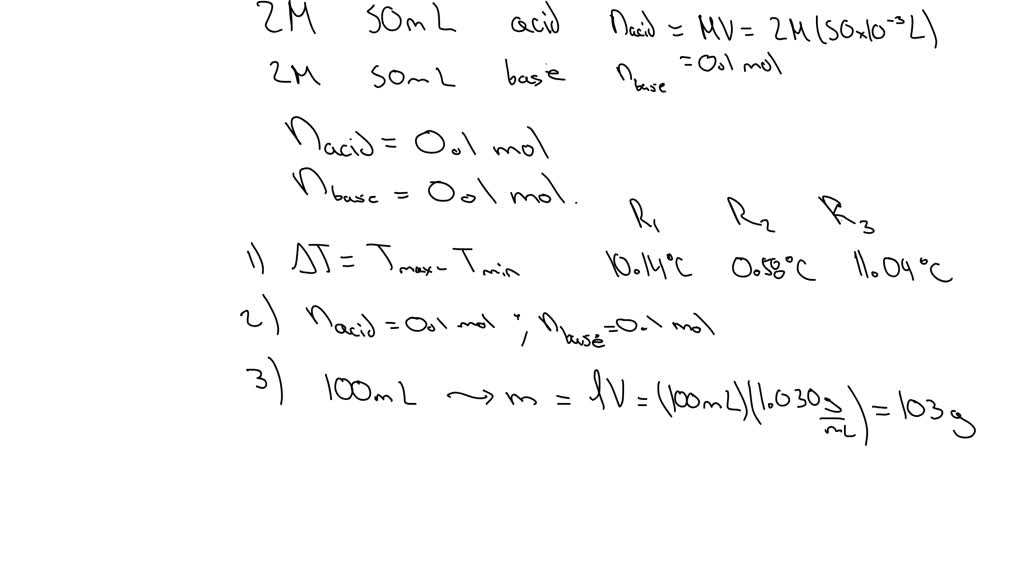 2M 50mL acid n_acid = MV = 2M(50x10⁻³L)
2M 50mL base n_base = 0.1 mol
n_acid = 0.1 mol
n_base = 0.1 mol.
R₁ R₂ R₃
1) ΔT = T_max - T_min 10.14°C 0.58°C 11.04°C
2) n_acid = 0.1 mol ; n_base = 0.1 mol
3) 100mL ⇝ m = ρV = (100mL)(1.030 g/mL) = 103 g